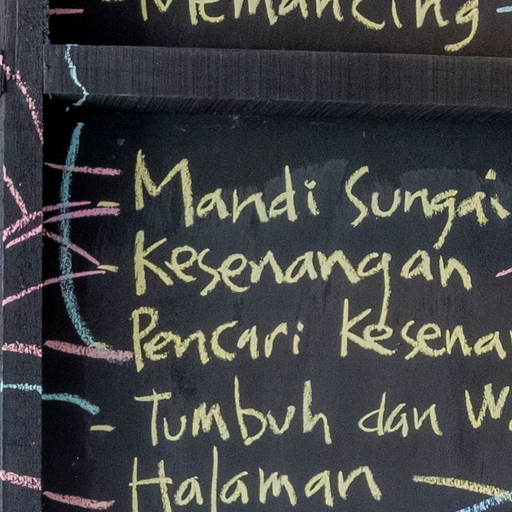 - Memancing
- Mandi Sungai
- Kesenangan
Pencari
- Tumbuh dan
Halaman